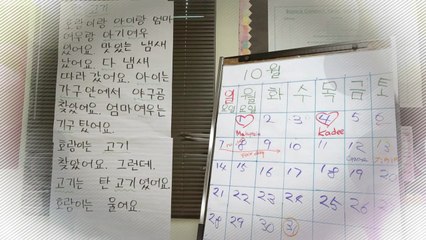 고기
호랑이랑 아이랑 엄마
여우랑 아기여우
있어요. 맛있는 냄새
났어요. 다 냄새
따라 갔어요. 아이는
가구 안에서 야구공
찾았어요. 엄마 여우는
가구 탔어요.
호랑이는 고기
찾았어요. 그런데,
고기는 탄 고기였어요
호랑이는 울어요.
10월
일 월 화 수 목 금 토
요일 요일
1 2 3 4 5 6
Malaysia Kadee
7 8 9 10 11 12 13
14 15 16 17 18 19 20
21 22 23 24 25 26
28 29 30 31